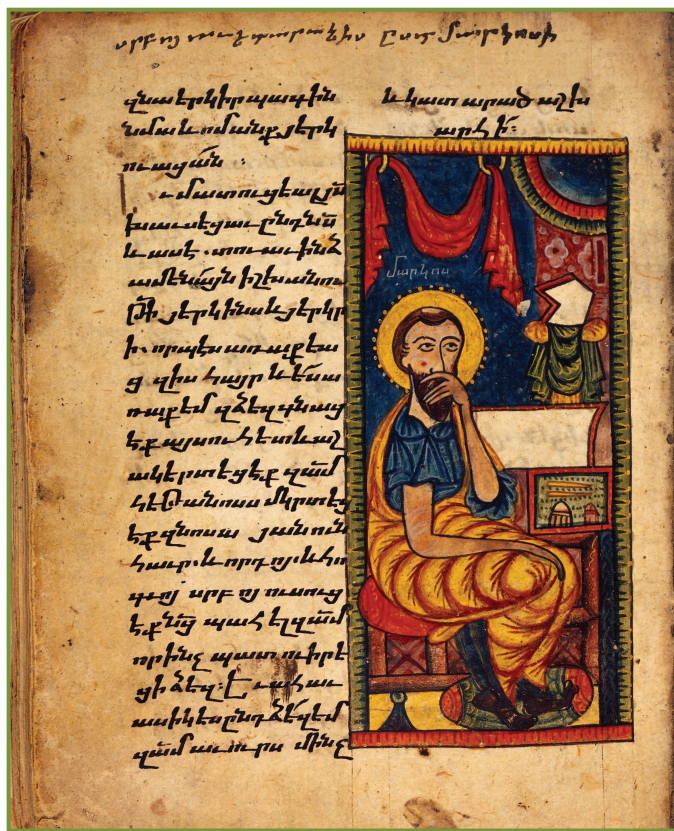 սրբոյ աւետարանիս ըստ մարկոսի
զնա երկիր պագին
նմա և ոմանք յերկ
ուացան ։
ւ մատուցեալ յս̅
խաւսեցաւ ընդ նս̅
և ասէ . տուաւ ինձ
ամենայն իշխանու
թի̅ յերկինս և յերկր
ի. որպէս առաքեա
ց զիս հայր և ես ա
ռաքեմ զձեզ գնաց
էք այսուհետև աշ
ակերտեցէք զամ̅
հեթանոսս մկրտեց
էք զնոսա յանուն
հաւր և որդոյ և հո
գւոյ սրբոյ ուսուց
էք նց̅ պահել զամ̅
որինչ պատուիրե
ցի ձեզ։ Եւ ահաւ
ասիկ ես ընդ ձեզ եմ
զամ̅ աւուրս մինչ
և կատարած աշխ
արհի։
մարկոս